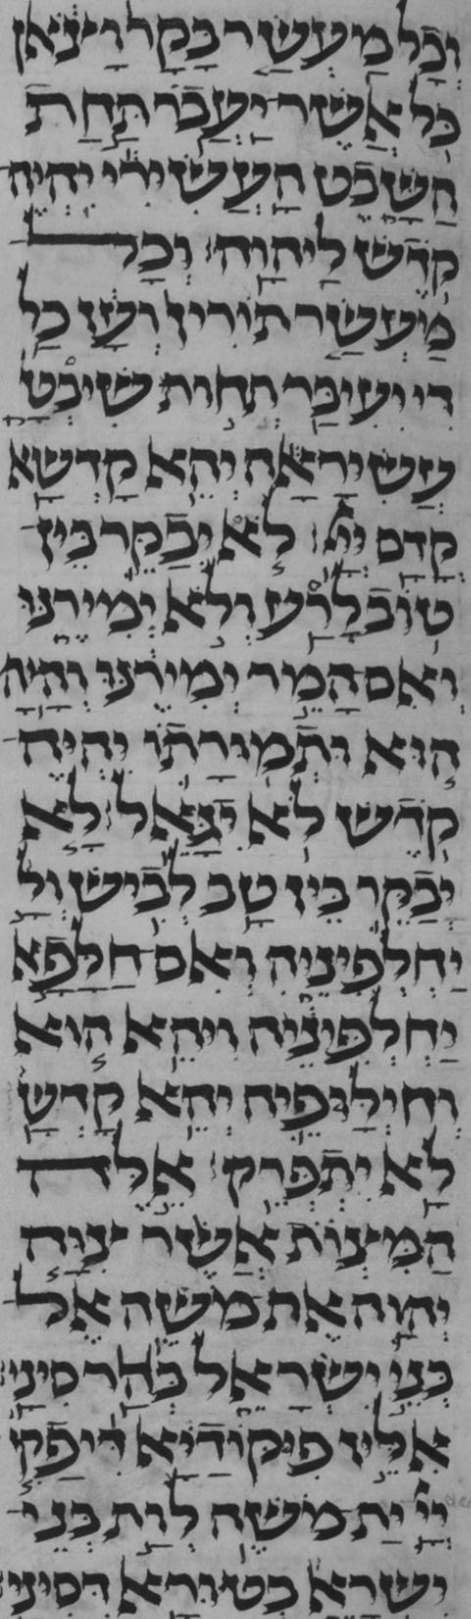 וְכָל מַעְשַׂר בָּקָר וָצֹאן
כֹּל אֲשֶׁר יַעֲבֹר תַּחַת
הַשָּׁבֶט הָעֲשִׂירִי יִהְיֶה
קֹדֶשׁ לַיהוָה׃ וְכָל
מַעְשַׂר תּוֹרִין וְעָן כָּל
דִּי יְעִיבַר תְּחוֹת שִׁיבְטָ
עֲשִׂירָאָה יְהֵא קֻדְשָׁא
קֳדָם יְיָ׃ לֹא יְבַקֵּר בֵּין
טוֹב לָרַע וְלֹא יְמִירֶנּוּ
וְאִם הָמֵר יְמִירֶנּוּ וְהָיָה
הוּא וּתְמוּרָתוֹ יִהְיֶה
קֹדֶשׁ לֹא יִגָּאֵל׃ לָא
יְבַקַּר בֵּין טָב לְבִישׁ וְלָ
יַחְלְפִינֵיהּ וְאִם חַלָּפָא
יַחְלְפִינֵיהּ וִיהֵא הוּא
וְחִילוּפֵיהּ יְהֵא קֻדְשָׁ
לָא יִתְפְּרֵק׃ אֵלֶּה
הַמִּצְוֹת אֲשֶׁר צִוָּה
יְהוָה אֶת מֹשֶׁה אֶל
בְּנֵי יִשְׂרָאֵל בְּהַר סִינָי׃
אִלֵּין פִּיקוּדַיָּא דִּיפַקֵּ
יְיָ יָת מֹשֶׁה לְוָת בְּנֵי
יִשְׂרָא בְּטוּרָא דְּסִינָי׃